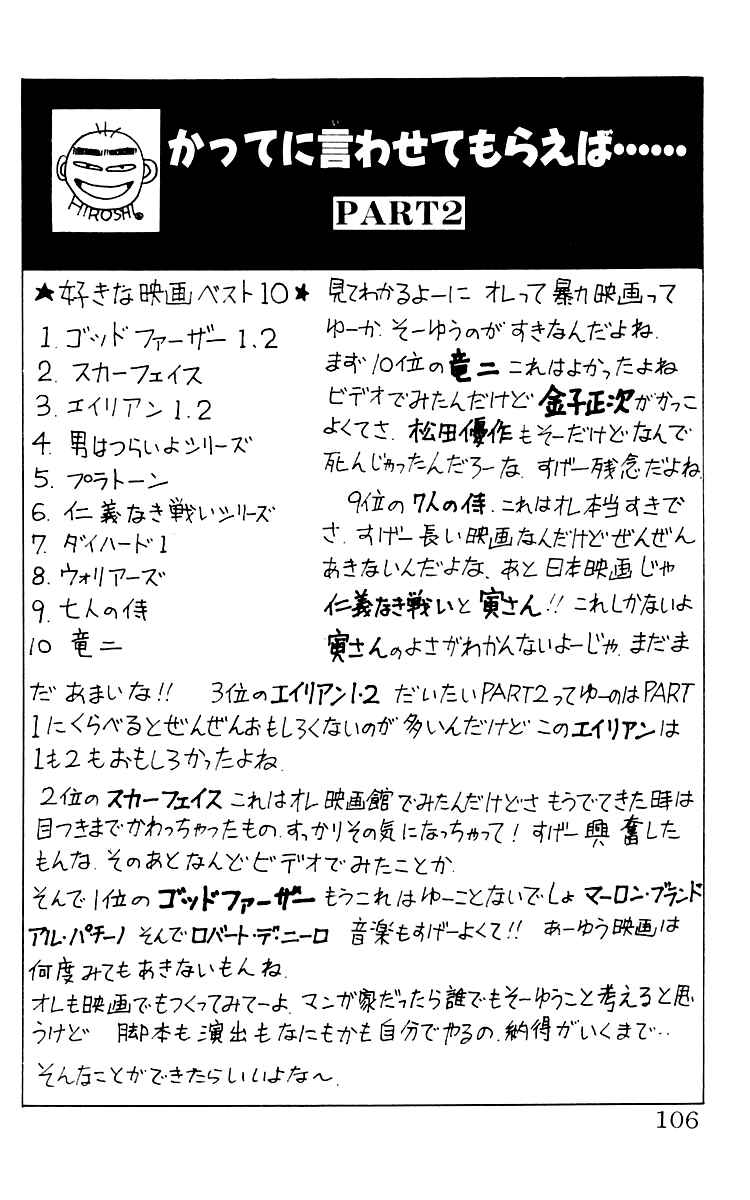 かってに言わせてもらえば……
PART2
HIROSHI
★好きな映画ベスト10★
1. ゴッドファーザー1.2
2. スカーフェイス
3. エイリアン1.2
4. 男はつらいよシリーズ
5. プラトーン
6. 仁義なき戦いシリーズ
7. ダイハード1
8. ウォリアーズ
9. 七人の侍
10 竜二
見てわかるよーに オレって暴力映画って
ゆーか.そーゆうのがすきなんだよね.
まず10位の竜二これはよかったよね
ビデオでみたんだけど金子正次がかっこ
よくてさ.松田優作もそーだけどなんで
死んじゃったんだろーな.すげー残念だよね.
9位の7人の侍.これはオレ本当すきで
さ.すげー長い映画なんだけどぜんぜん
あきないんだよな、あと日本映画じゃ
仁義なき戦いと寅さん!!これしかないよ
寅さんのよさがわかんないよーじゃ.まだま
だ あまいな!! 3位のエイリアン1・2 だいたいPART2ってゆーのはPART
1にくらべるとぜんぜんおもしろくないのが多いんだけどこのエイリアンは
1も2もおもしろかったよね.
2位のスカーフェイスこれはオレ映画館でみたんだけどさもうでてきた時は
目つきまでかわっちゃったもの.すっかりその気になっちゃって!すげー興奮した
もんな.そのあとなんどビデオでみたことか.
そんで1位のゴッドファーザーもうこれはゆーことないでしょ マーロン・ブランド
アル・パチーノ そんでロバート・デ・ニーロ 音楽もすげーよくて!! あーゆう映画は
何度みてもあきないもんね.
オレも映画でもつくってみてーよ.マンガ家だったら誰でもそーゆうこと考えると思
うけど 脚本も演出もなにもかも自分でやるの.納得がいくまで…
そんなことができたらいいよな〜.
106